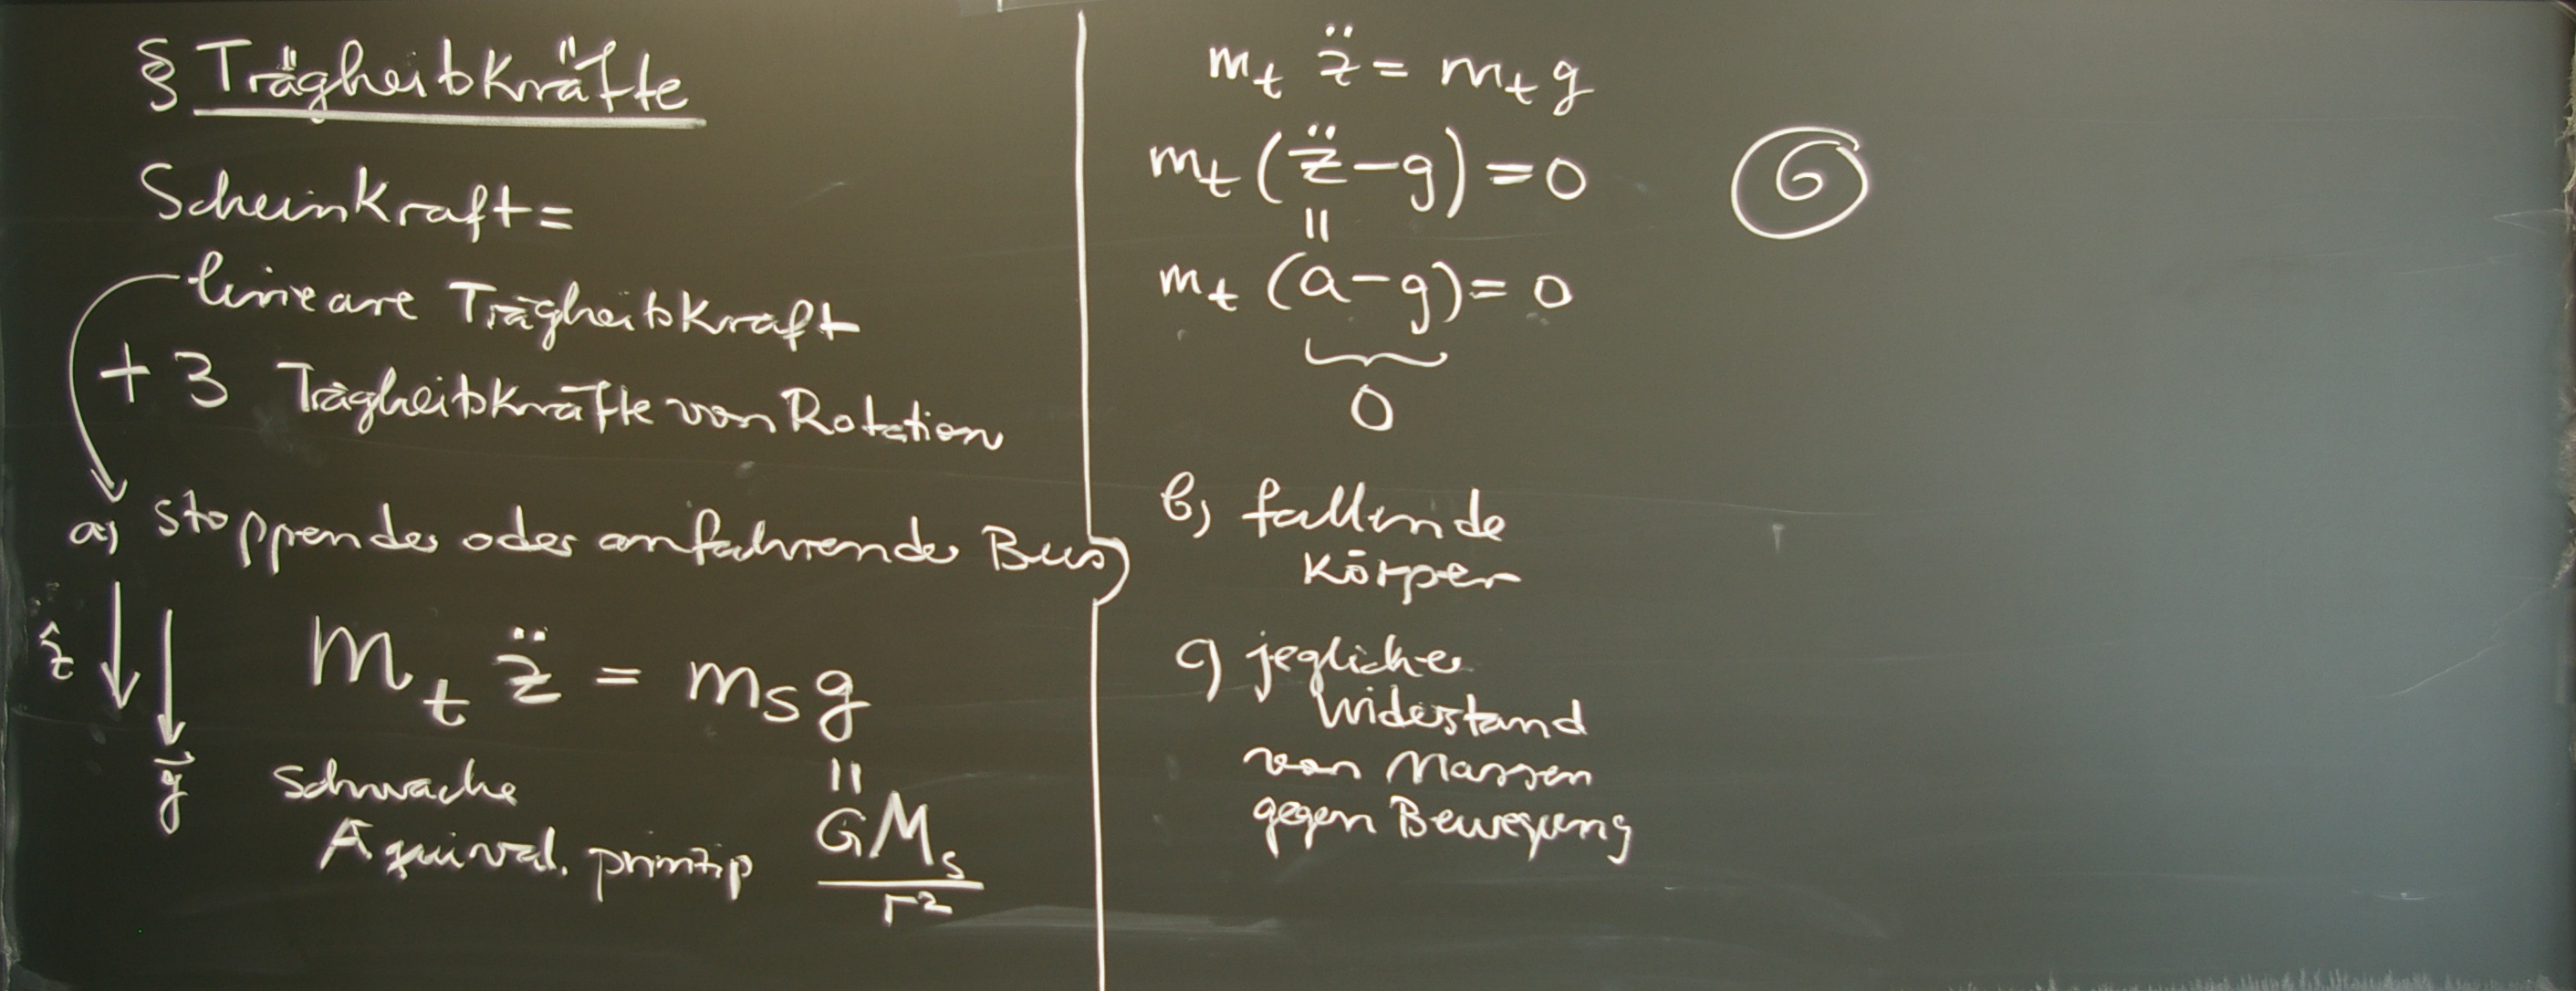 § Trägheitskräfte
Scheinkraft =
lineare Trägheitskraft
+ 3 Trägheitskräfte von Rotation
a) stoppender oder anfahrender Bus
ẑ
g⃗
m_t z̈ = m_s g
schwache
Äquival. prinzip
=
GM_s
r²
m_t z̈ = m_t g
m_t (z̈ - g) = 0
=
m_t (a - g) = 0
0
b) fallende
Körper
c) jeglicher
Widerstand
von Massen
gegen Bewegung
6